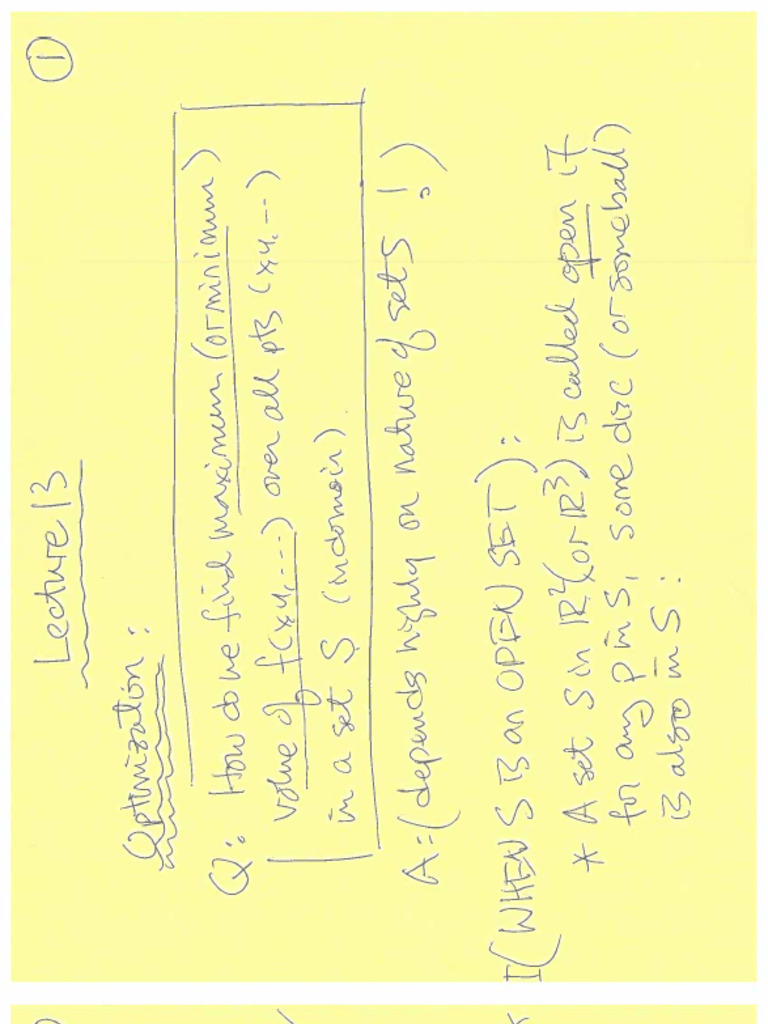 ①
Lecture 13
Optimization:
Q: How do we find maximum (or minimum)
value of f(x,y,...) over all pts (x,y,..)
in a set S (in domain).
A: (depends highly on nature of set S !)
I (WHEN S is an OPEN SET):
* A set S in IR² (or IR³) is called open if
for any p in S, some disc (or some ball)
is also in S: